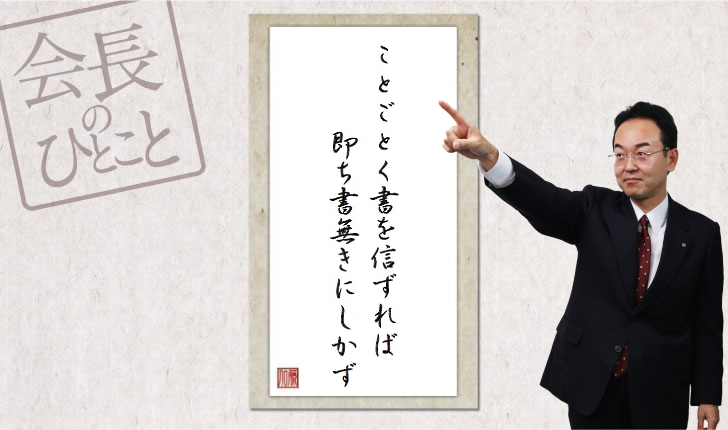 会長
の
ひとこと
ことごとく書を信ずれば
即ち書無きにしかず